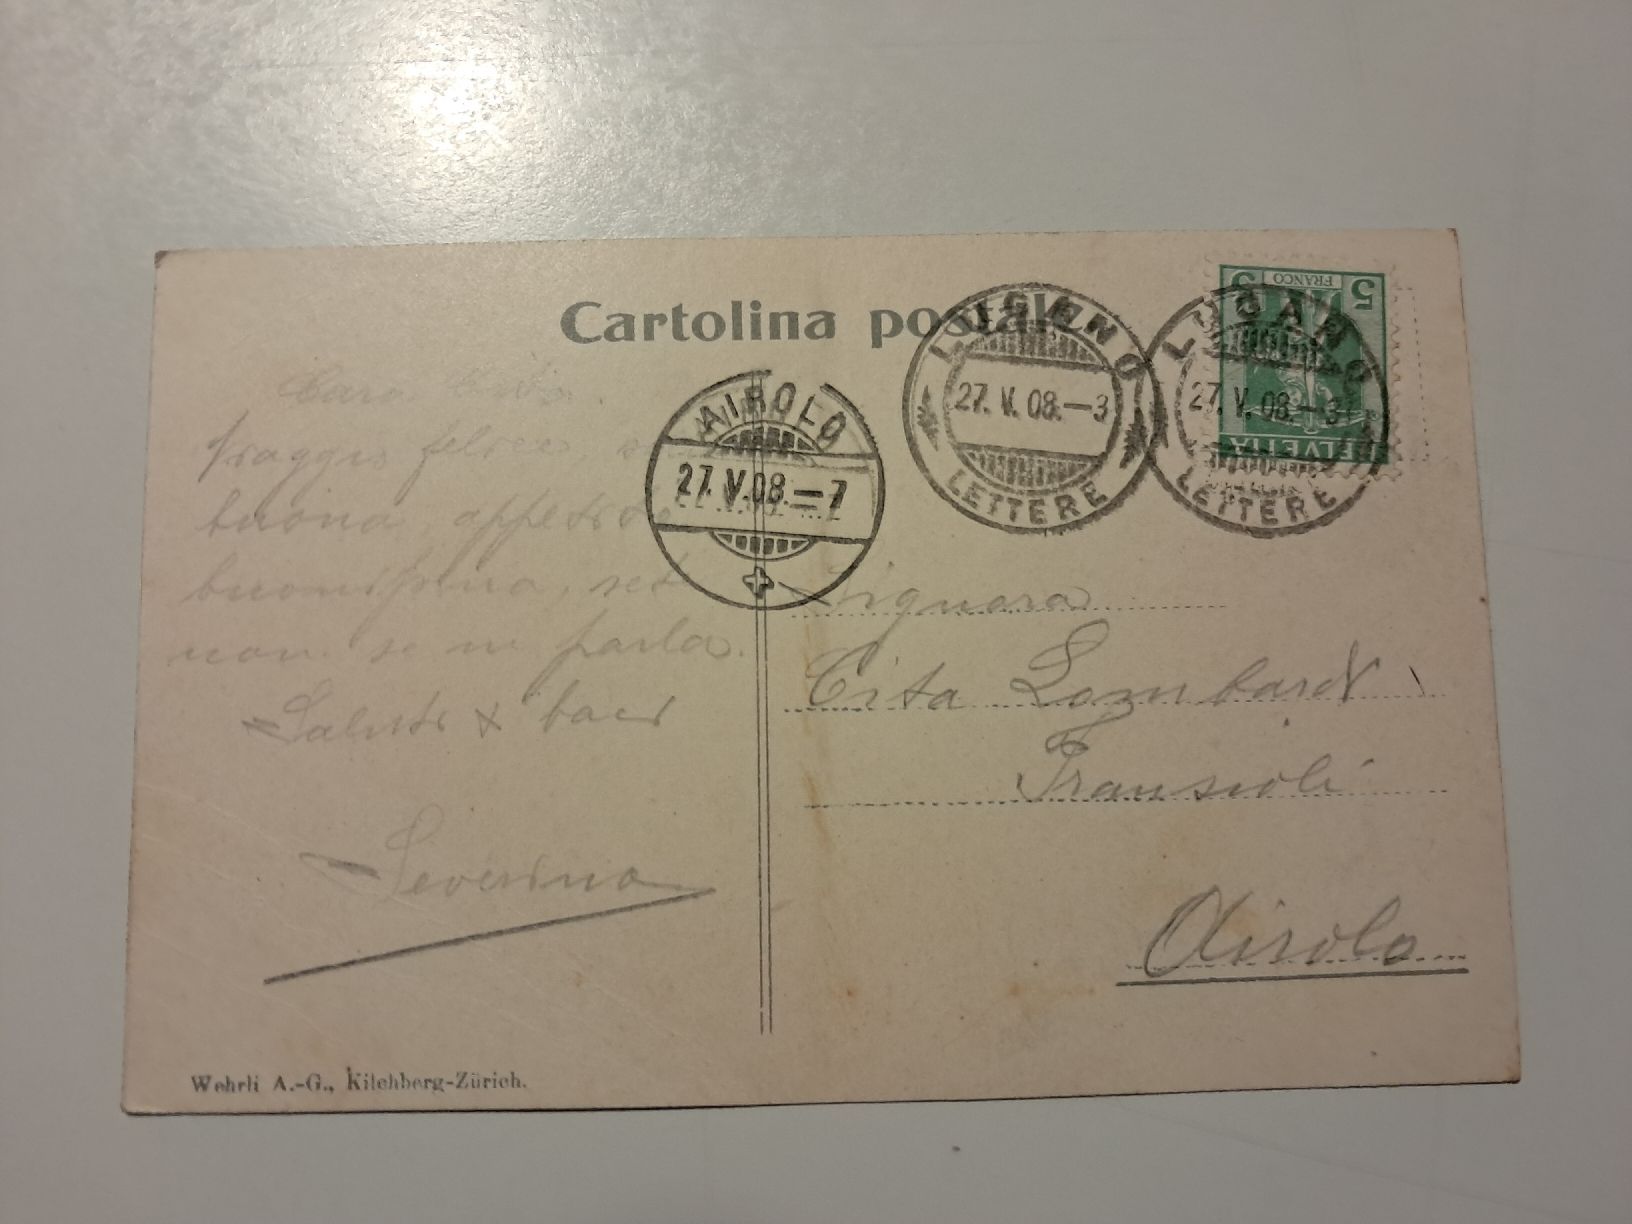 Cartolina postale
FRANCO
5 5
HELVETIA
LUGANO
27. V. 08.—3
LETTERE
LUGANO
27. V. 08.—3
LETTERE
AIROLO
27. V. 08.—7
Cara Cita.
viaggio felice,
buona, appetito
buonissima, sete
non se ne parla.
Saluti & baci
Severina
Signora
Cita Lombardi
Fransioli
Airolo
Wehrli A.-G., Kilchberg-Zürich.